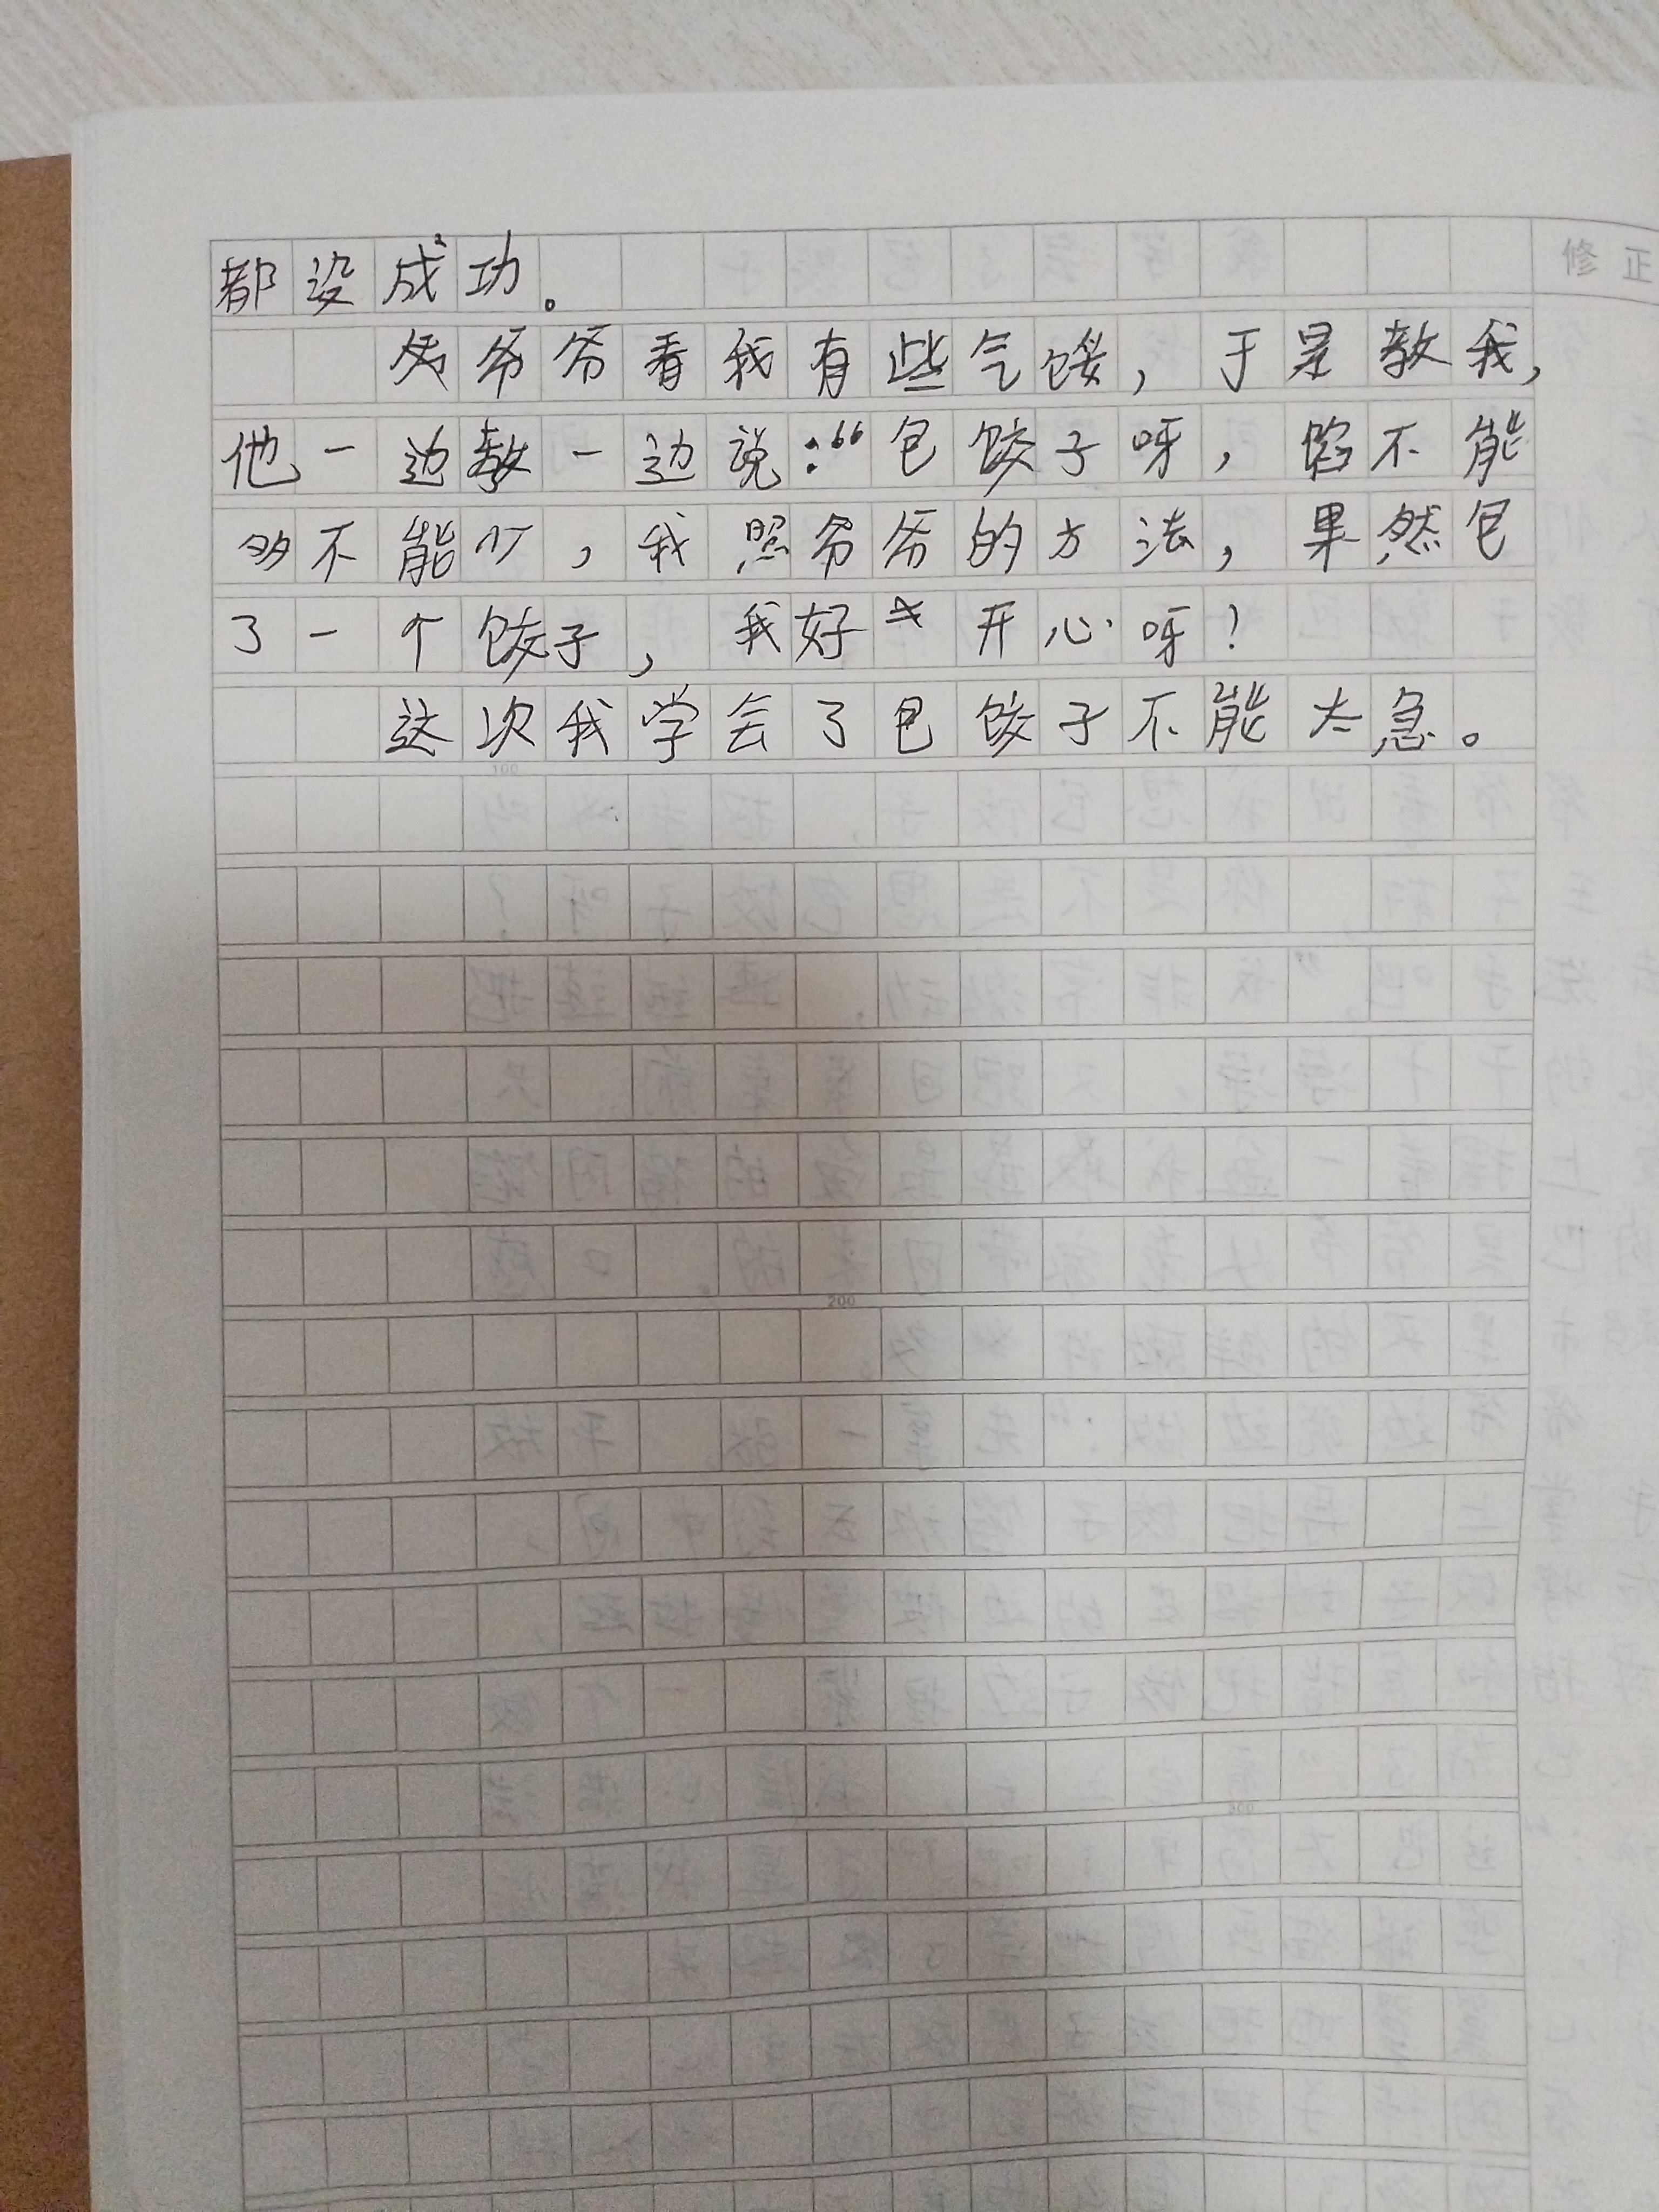 都没成功。
爷爷看我有些气馁，于是教我，
他一边教一边说：“包饺子呀，馅不能
多不能少，我照爷爷的方法，果然包
了一个饺子，我好开心呀！
这次我学会了包饺子不能太急。
修正
100
200
300